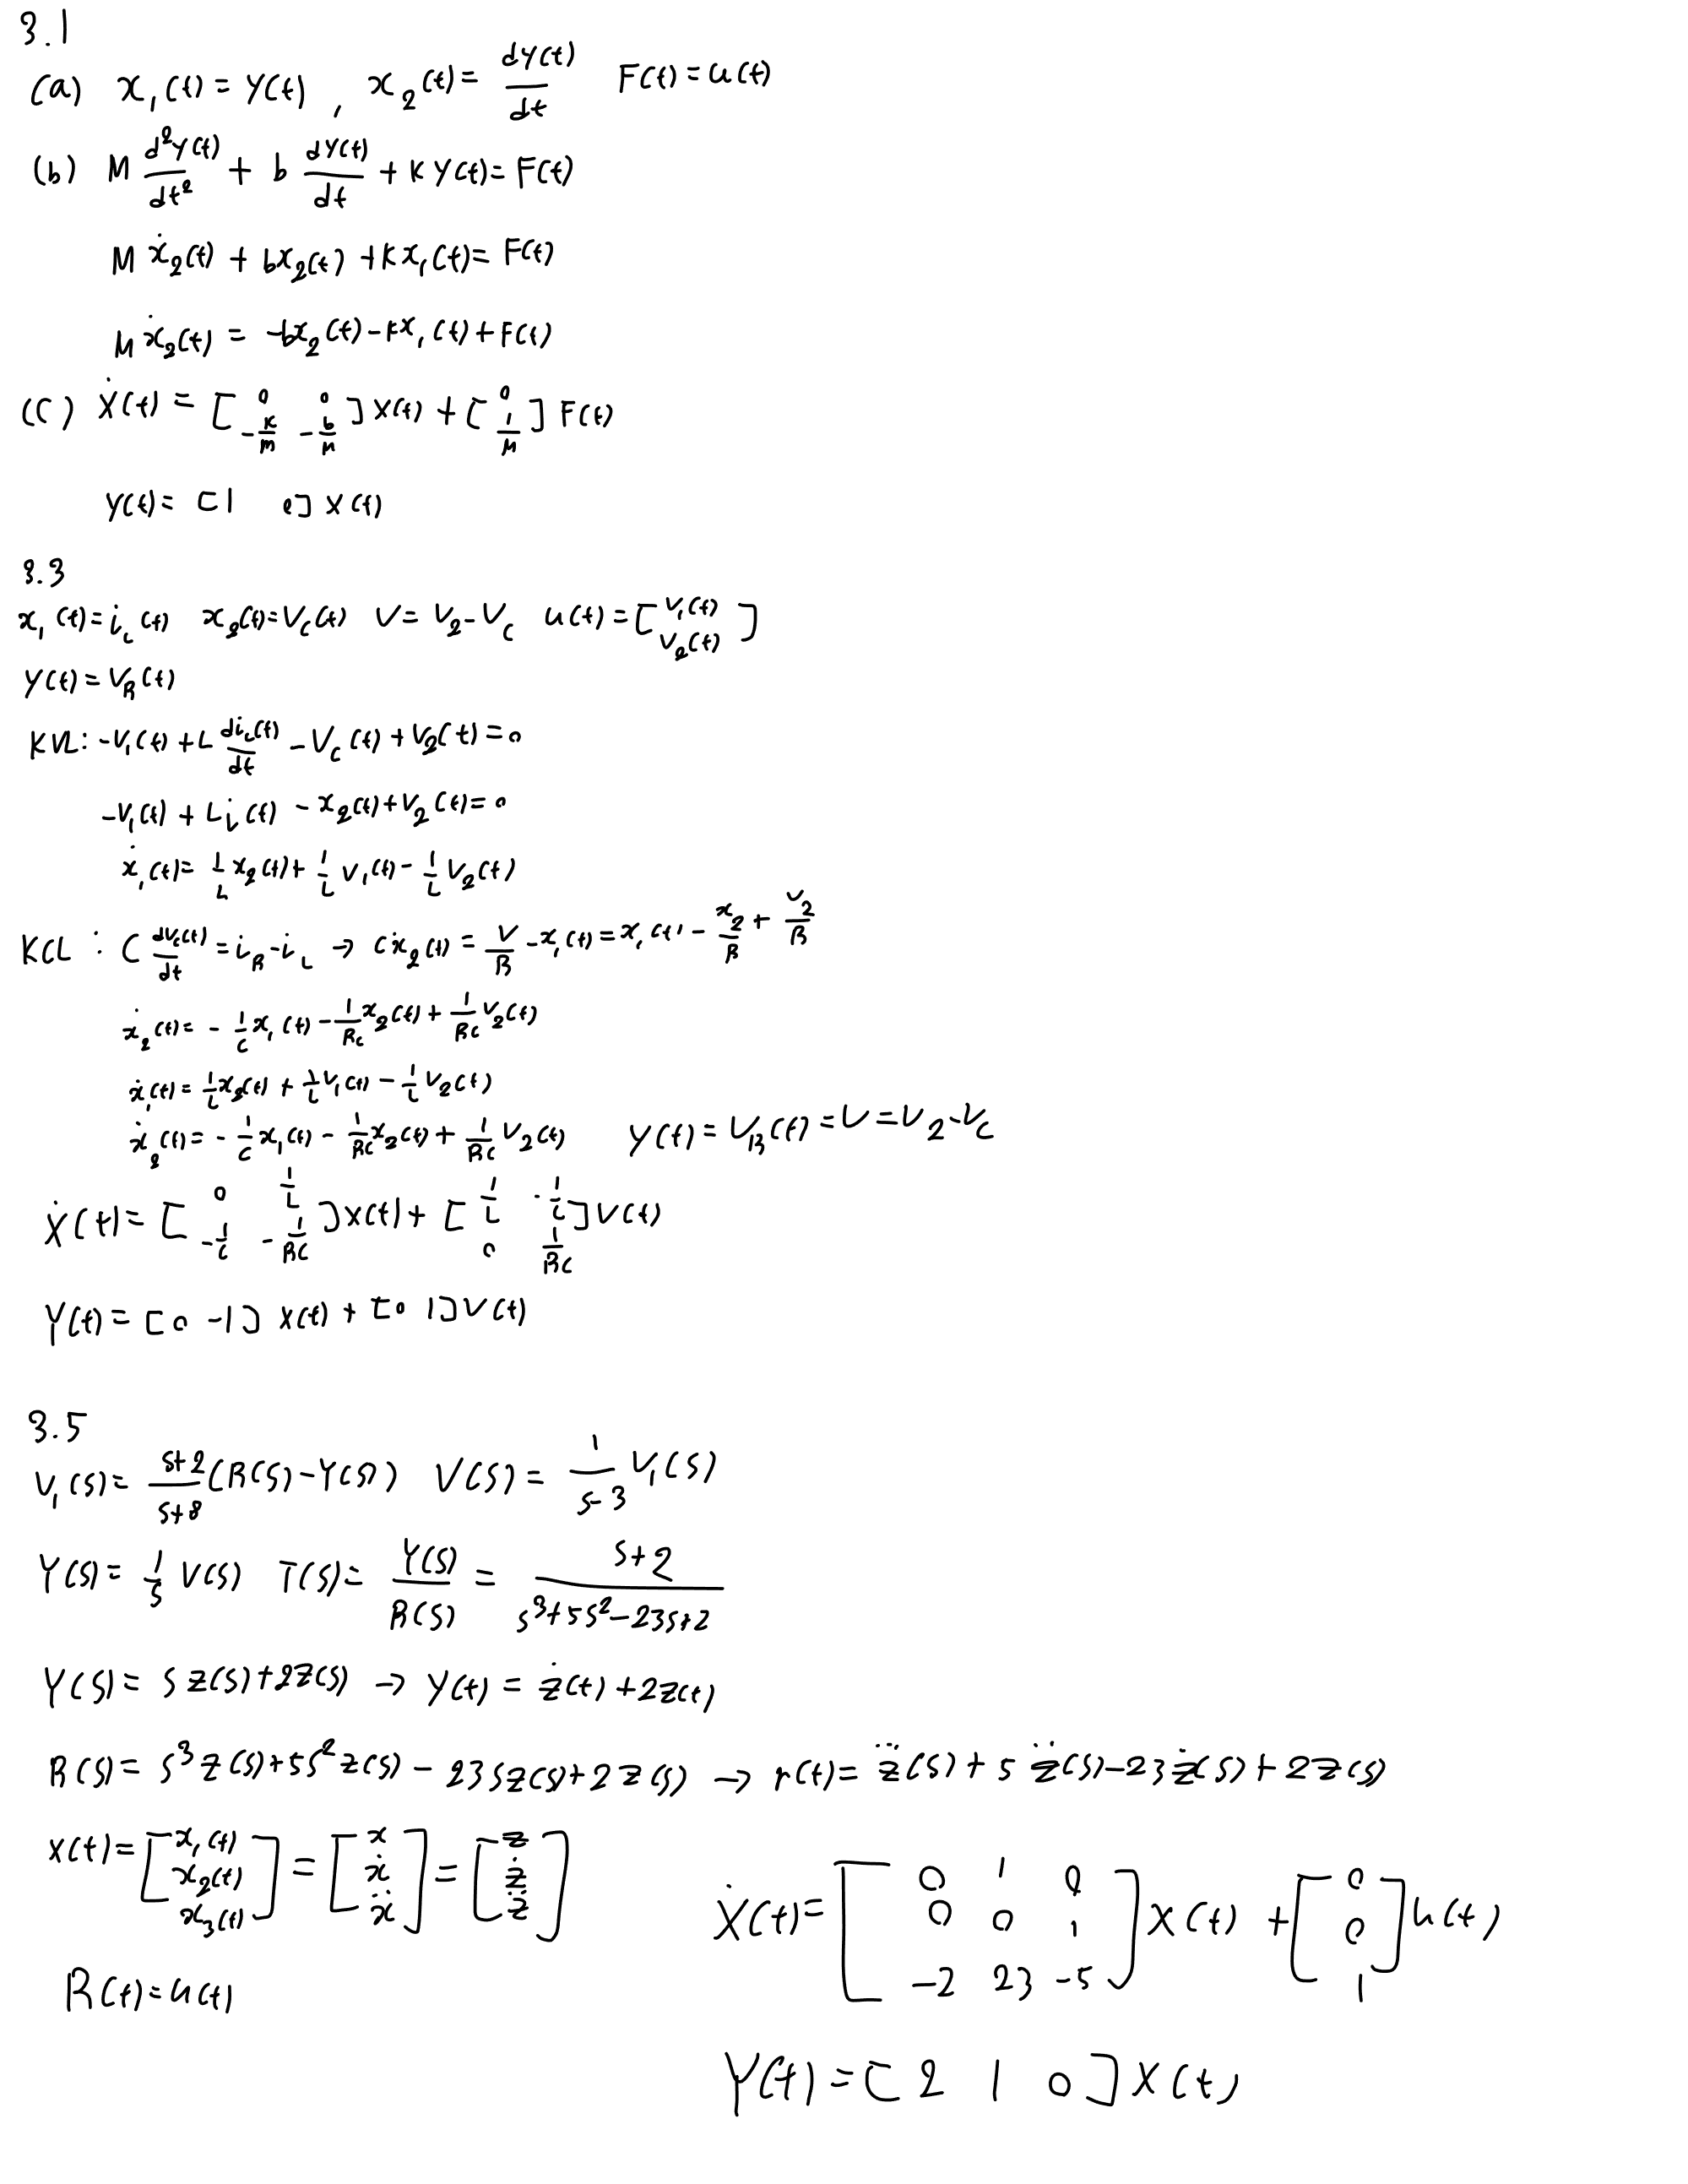 3.1
(a) x₁(t) = y(t) , x₂(t) = dy(t)/dt F(t) = u(t)
(b) M d²y(t)/dt² + b dy(t)/dt + k y(t) = F(t)
M ẋ₂(t) + bx₂(t) + kx₁(t) = F(t)
M ẋ₂(t) = -bx₂(t) - kx₁(t) + F(t)
(c) Ẋ(t) = [ 0 0 ; -k/m -b/m ] x(t) + [ 0 ; 1/M ] F(t)
y(t) = [ 1 0 ] x(t)
3.3
x₁(t) = i_L(t) x₂(t) = V_c(t) V = V₂ - V_c u(t) = [ V₁(t) ; V₂(t) ]
y(t) = V_R(t)
KVL: -V₁(t) + L di_L(t)/dt - V_c(t) + V₂(t) = 0
-V₁(t) + L i̇(t) - x₂(t) + V₂(t) = 0
ẋ₁(t) = 1/L x₂(t) + 1/L V₁(t) - 1/L V₂(t)
KCL : C dV_c(t)/dt = i_R - i_L → cẋ₂(t) = V/R - x₁(t) = x₁(t) - x₂/R + V₂/R
ẋ₂(t) = - 1/C x₁(t) - 1/RC x₂(t) + 1/RC V₂(t)
ẋ₁(t) = 1/L x₂(t) + 1/L V₁(t) - 1/L V₂(t)
ẋ₂(t) = - 1/C x₁(t) - 1/RC x₂(t) + 1/RC V₂(t) y(t) = V_R(t) = V = V₂ - V_c
Ẋ(t) = [ 0 1/L ; -1/C -1/RC ] x(t) + [ 1/L -1/L ; 0 1/RC ] V(t)
Y(t) = [ 0 -1 ] x(t) + [ 0 1 ] V(t)
3.5
V₁(s) = s+2/s+8 (R(s) - Y(s)) V(s) = 1/s-3 V₁(s)
Y(s) = 1/s V(s) T(s) = Y(s)/R(s) = s+2/s³+5s²-23s+2
Y(s) = s z(s) + 2z(s) → y(t) = ż(t) + 2z(t)
R(s) = s³ z(s) + 5s² z(s) - 23 s z(s) + 2 z(s) → r(t) = z⃛(s) + 5 z̈(s) - 23 ż(s) + 2z(s)
x(t) = [ x₁(t) ; x₂(t) ; x₃(t) ] = [ x ; ẋ ; ẍ ] = [ z ; ż ; z̈ ]
Ẋ(t) = [ 0 1 0 ; 0 0 1 ; -2 23 -5 ] x(t) + [ 0 ; 0 ; 1 ] u(t)
R(t) = u(t)
Y(t) = [ 2 1 0 ] x(t)